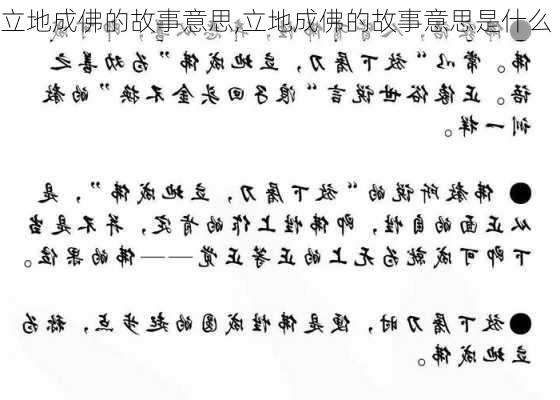 立地成佛的故事意思,立地成佛的故事意思是什么
佛。常以“放下屠刀，立地成佛”为劝善之
语。正像俗世说言“浪子回头金不换”的教
训一样。
● 佛教所说的“放下屠刀，立地成佛”，是
从正面的自性，即佛性上作的肯定，并不是当
下即可成就为无上的正等正觉——佛的果位。
●放下屠刀时，便是佛性成圆的起步点，称为
立地成佛。